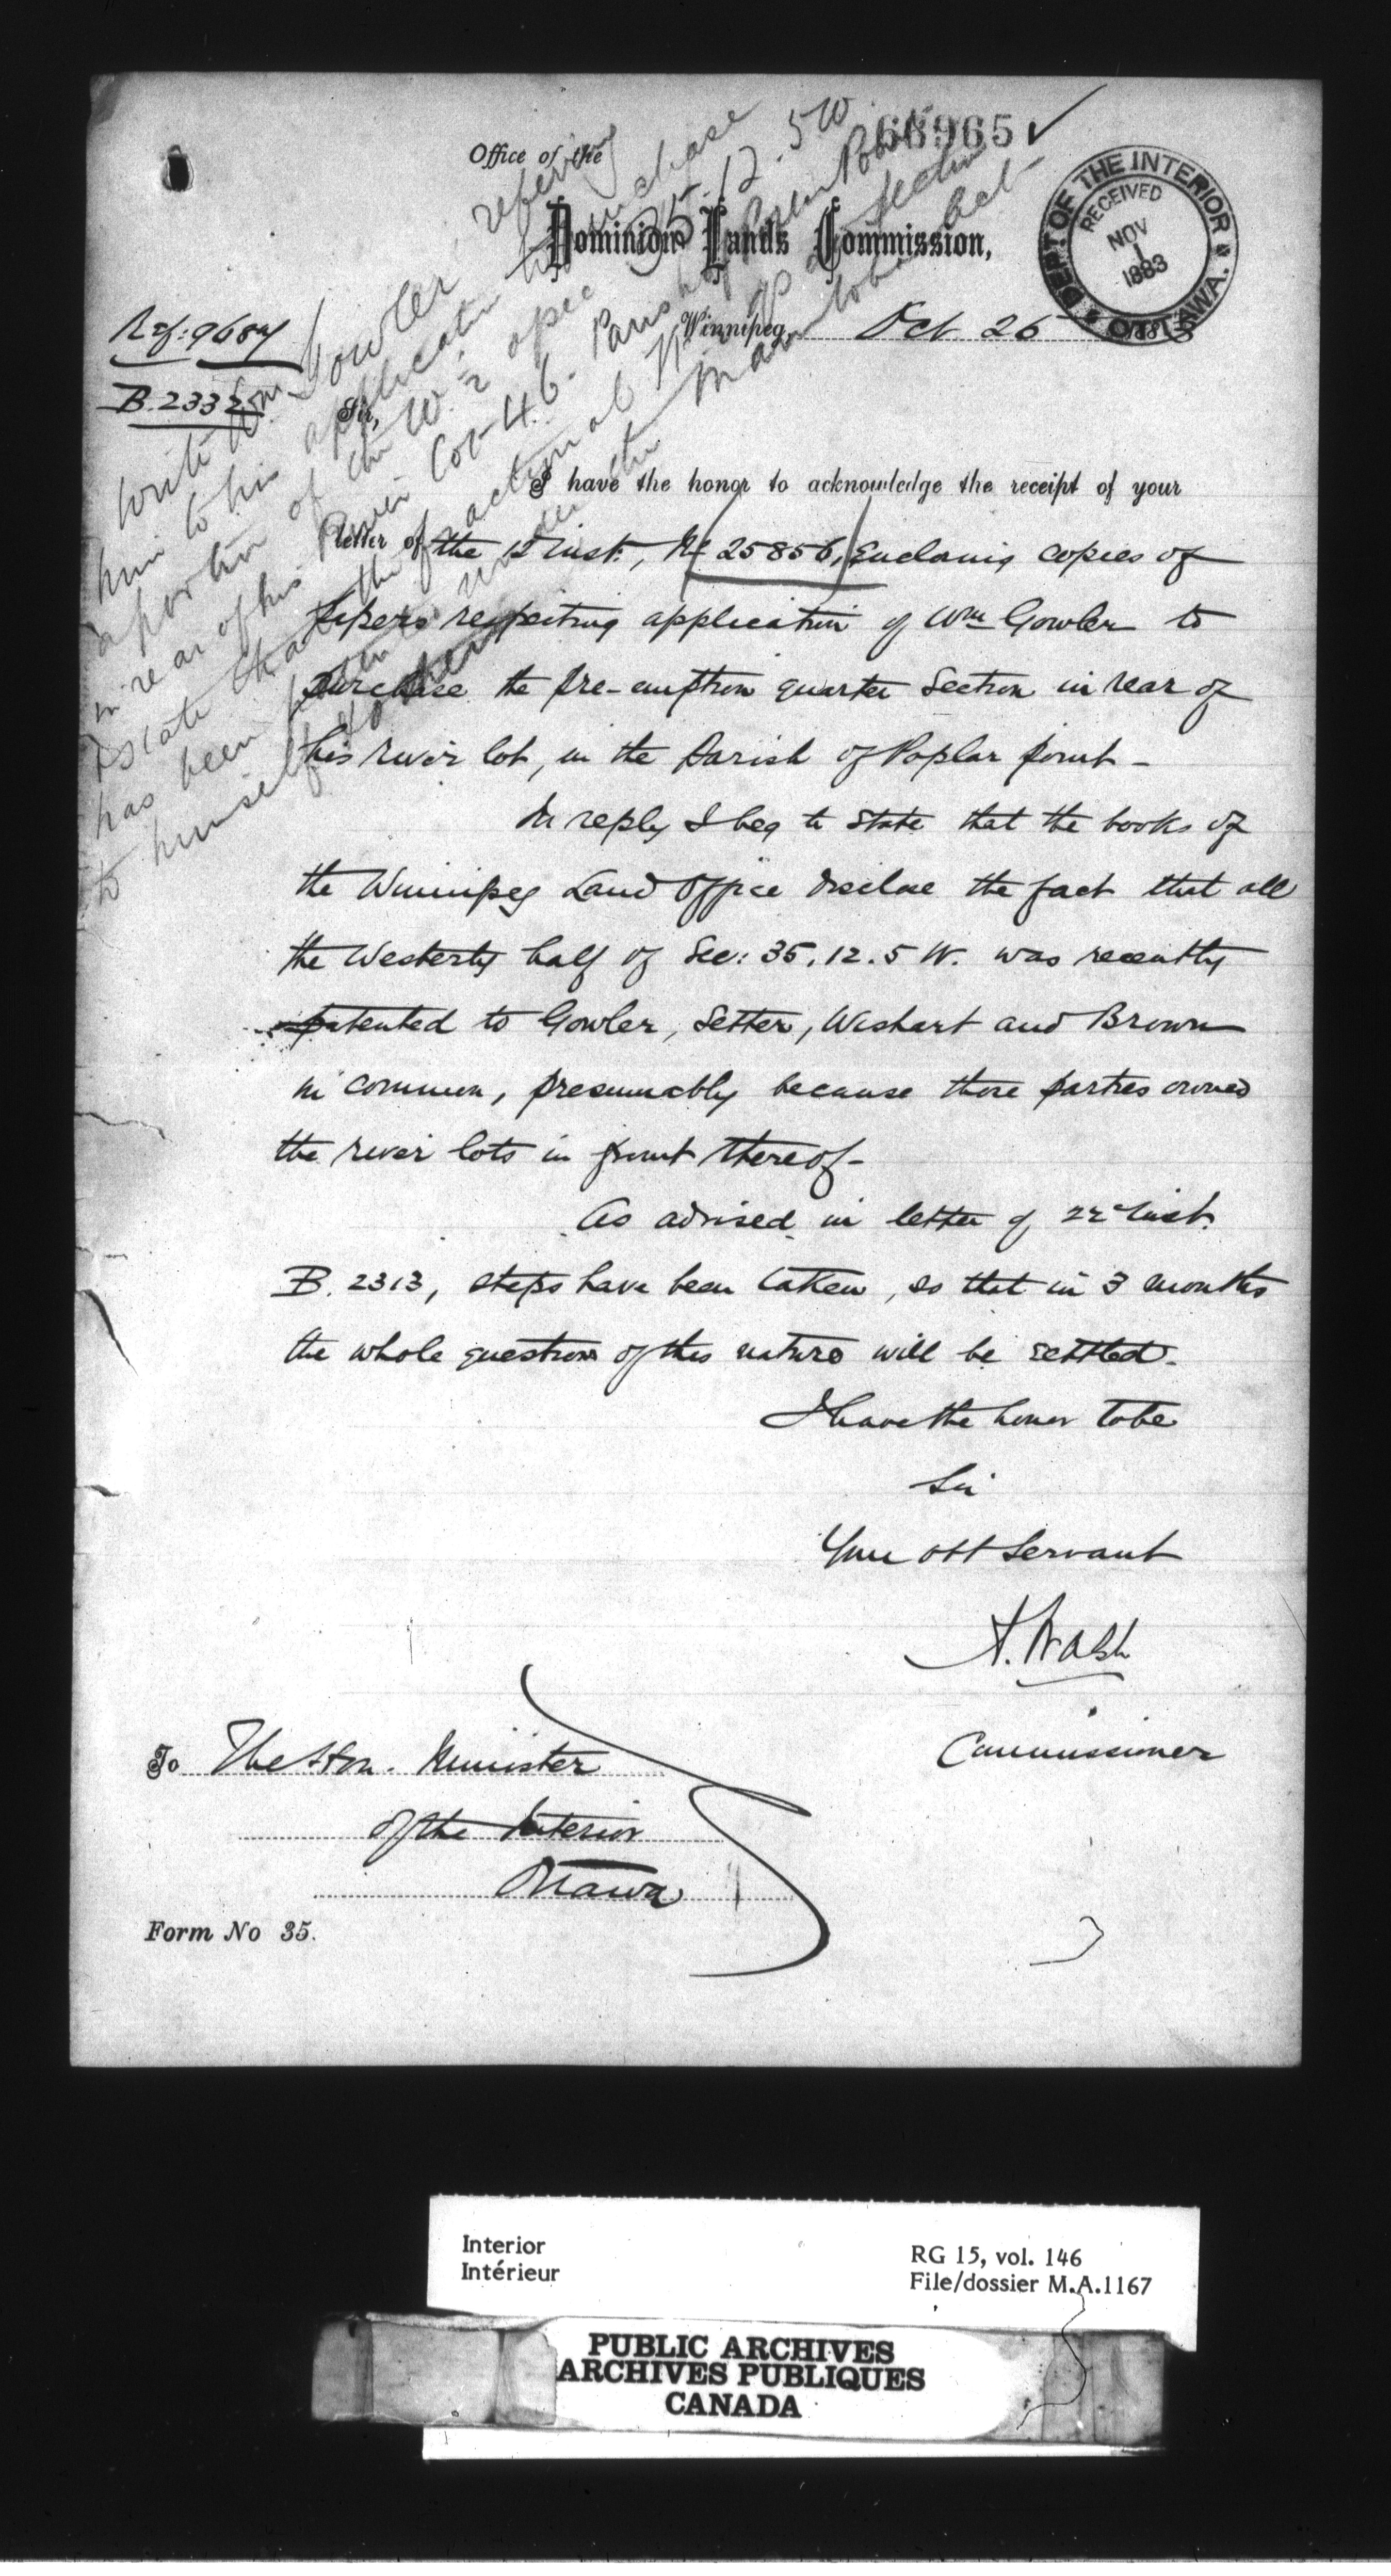 68965
Office of the
Dominion Lands Commission,
DEPT OF THE INTERIOR
RECEIVED
NOV
1
1883
OTTAWA.
Winnipeg, Oct. 26
Ref: 9684
B. 2332
Write Wm Gowler refering
him to his application to purchase
a portion of the W. ½ of sec 35. 12. 5 W.
in rear of his River Lot 46. Parish of Poplar Point
& state that the fractional of section
has been under the Manitoba Act
to himself & others
Sir,
I have the honor to acknowledge the receipt of your
letter of the 12 inst., No 25856, Enclosing copies of
papers respecting application of Wm Gowler to
purchase the pre-emption quarter Section in rear of
his river lot, in the Parish of Poplar point -
In reply I beg to state that the books of
the Winnipeg Land Office disclose the fact that all
the Westerly half of Sec: 35. 12. 5 W. was recently
patented to Gowler, Setter, Wishart and Brown
in common, presumably because those parties owned
the river lots in front thereof -
As advised in letter of 22nd inst.
B. 2313, steps have been taken, so that in 3 months
the whole question of this nature will be settled.
I have the honor to be
Sir
Your obt Servant
A. Walsh
Commissioner
To The Hon. Minister
of the Interior
Ottawa
Form No 35.
Interior
Intérieur
RG 15, vol. 146
File/dossier M.A.1167
PUBLIC ARCHIVES
ARCHIVES PUBLIQUES
CANADA